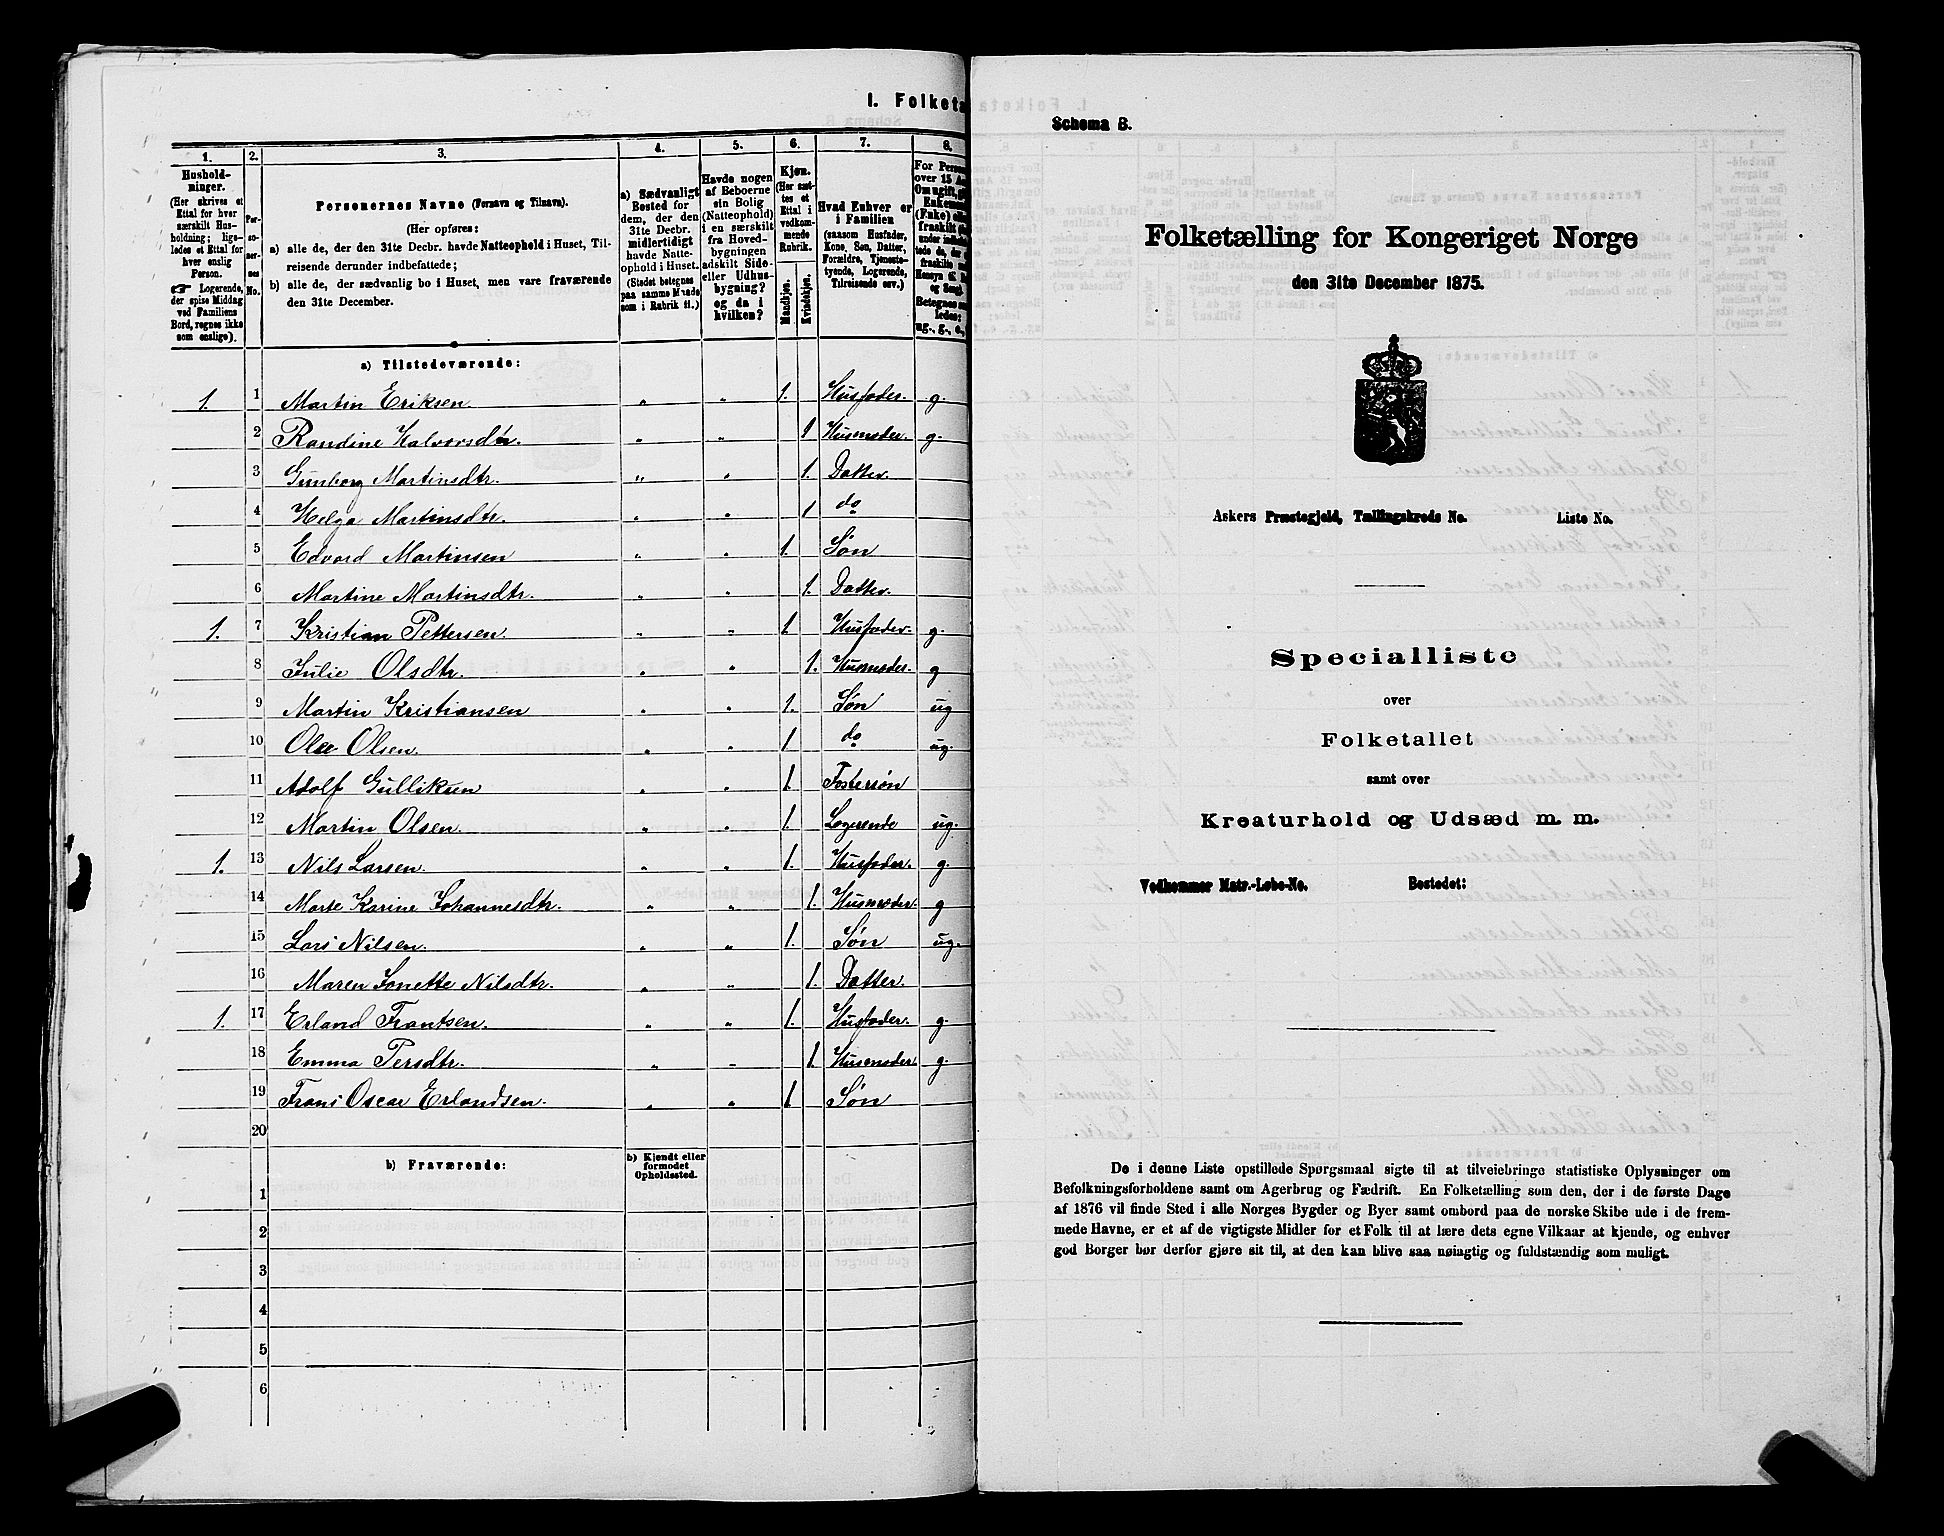 I. Folketa
1.
Husholdninger.
(Her skrives et
Ettal for hver
særskilt Husholdning;
ligeledes et Ettal for
hver enslig
Person.
☞ Logerende,
der spise Middag
ved Familiens
Bord, regnes ikke
som enslige).
2.
Personernes
No.
3.
Personernes Navne (Fornavn og Tilnavn).
(Her opføres:
a) alle de, der den 31te Decbr. havde Natteophold i Huset, Tilreisende
derunder indbefattede;
b) alle de, der sædvanlig bo i Huset, men vare fraværende
den 31te December.
4.
a) Sædvanligt
Bosted for
dem, der den
31te Decbr.
midlertidigt
havde Natteophold
i Huset.
(Stedet betegnes
paa samme Maade
som i Rubrik 11.)
5.
Havde nogen
af Beboerne
sin Bolig
(Natteophold)
i en særskilt
fra Hovedbygningen
adskilt Side-
eller Udhusbygning?
og da i
hvilken?
6.
Kjøn.
(Her sættes
et
Ettal i
vedkommende
Rubrik.
Mandkjøn.
Kvindekjøn.
7.
Hvad Enhver er
i Familien
(saasom Husfader,
Kone, Søn, Datter,
Forældre, Tjenestetyende,
Logerende,
Tilreisende osv.)
8.
For Person
over 15 Aa
Om ugift,
Enkem
(Enke) ell
fraskilt
Betegnes
ledes:
ug., g., e.,
a) Tilstedeværende:
1. 1 Martin Eriksen. " " 1. Husfader. g.
2 Randine Halvorsdtr. " " 1 Husmoder. g.
3 Gunborg Martinsdtr. " " 1. Datter.
4 Helga Martinsdtr. " " 1 do
5 Edvard Martinsen " " 1. Søn
6 Martine Martinsdtr. " " 1. Datter.
1. 7 Kristian Pettersen. " " 1. Husfader. g.
8 Julie Olsdtr. " " 1. Husmoder. g
9 Martin Kristiansen " " 1. Søn ug
10 Ole Olsen. " " 1 do ug.
11 Adolf Gulliksen " " 1. Fostersøn
12 Martin Olsen. " " 1. Logerende ug.
1. 13 Nils Larsen. " " 1. Husfader. g.
14 Marte Karine Johannesdtr. " " 1. Husmoder. g
15 Lars Nilsen. " " 1. Søn ug.
16 Maren Jonette Nilsdtr. " " 1. Datter.
1. 17 Erland Frantsen. " " 1. Husfader. g.
18 Emma Persdtr. " " 1. Husmoder. g.
19 Frans Oscar Erlandsen. " " 1 Søn
20
b) Fraværende:
b) Kjendt eller
formodet
Opholdssted.
1
2
3
4
5
6
Schema B.
Folketælling for Kongeriget Norge
den 31te December 1875.
Askers Præstegjeld, Tællingskreds No. Liste No.
Specialliste
over
Folketallet
samt over
Kreaturhold og Udsæd m. m.
Vedkommer Matr.-Løbe-No. Bostedet:
De i denne Liste opstillede Spørgsmaal sigte til at tilveiebringe statistiske Oplysninger om
Befolkningsforholdene samt om Agerbrug og Fædrift. En Folketælling som den, der i de første Dage
af 1876 vil finde Sted i alle Norges Bygder og Byer samt ombord paa de norske Skibe ude i de fremmede
Havne, er et af de vigtigste Midler for et Folk til at lære dets egne Vilkaar at kjende, og enhver
god Borger bør derfor gjøre sit til, at den kan blive saa nøiagtig og fuldstændig som muligt.